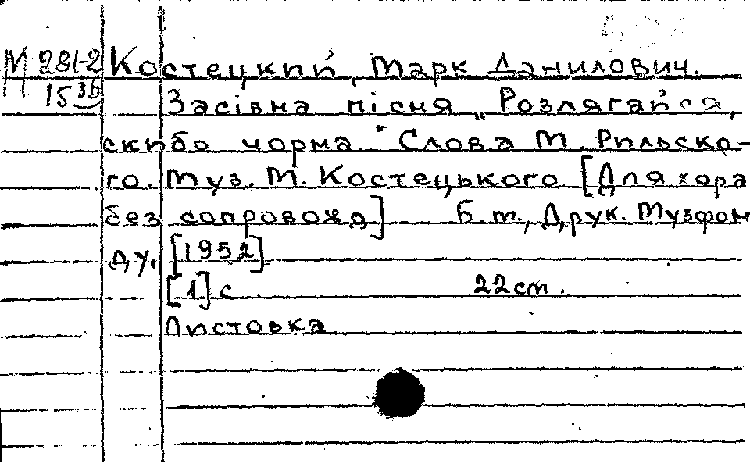 М 281-2 Костецкий, Марк Данилович.
15 36 Засівна пісня „Розлягайся,
скибо чорна." Слова М. Рильсько-
го. Муз. М. Костецького [Для хора
без сопровожд] Б.т., Друк. Музфон
ду. [1952]
[1] с 22 cm.
Листовка